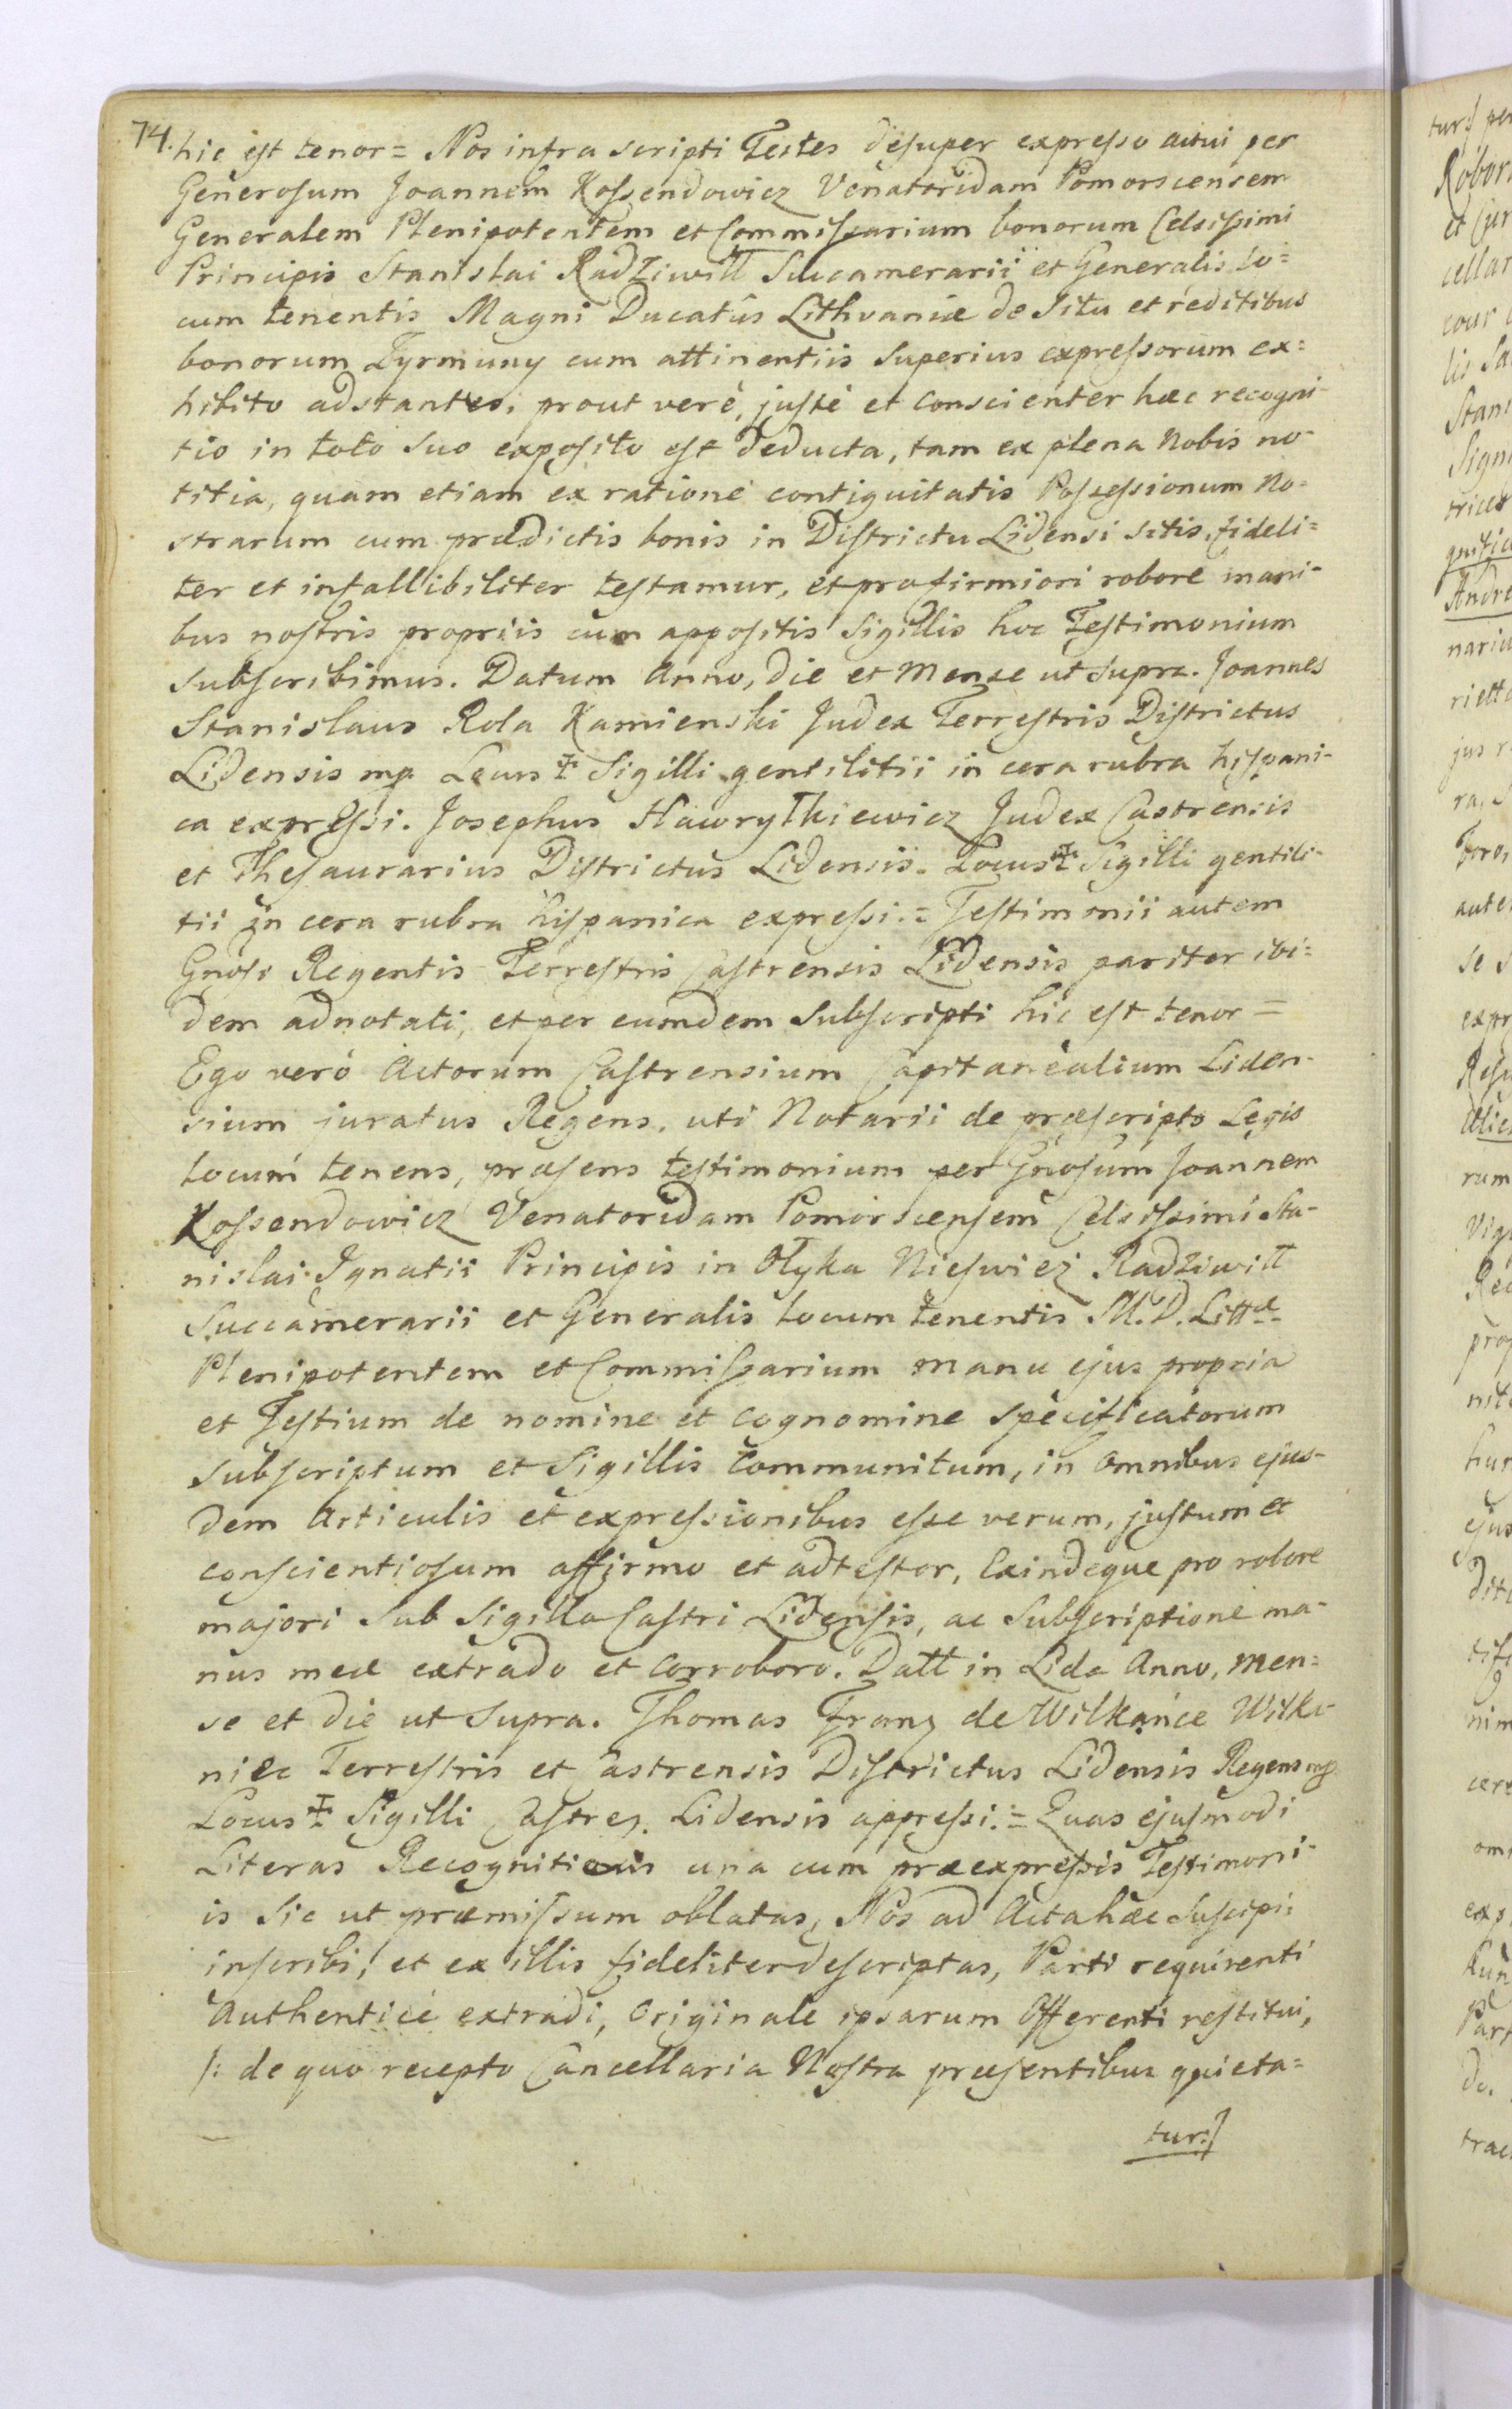 74. hic est tenor = Nos infra scripti Testes desuper expresso actui per
Generosum Joannem Kossendowicz Venatoridam Pomorscensem
Generalem Plenipotentem et Commissarium bonorum Celsissimi
Principis Stanislai Radziwill Succamerarii et Generalis lo=
cum tenentis Magni Ducatûs Lithvaniæ de situ et reditibus
bonorum Tyrmuny cum attinentiis superius expressorum ex=
hibito adstantes, prout verè, justè et conscienter hæc recogni-
tio in toto suo exposito est deducta, tam ex plena Nobis no-
titia, quam etiam ex ratione contiguitatis Possessionum No=
strarum cum prædictis bonis in Districtu Lidensi sitis, fideli=
ter et infallibiliter testamur, et pro firmiori robore mani-
bus nostris propriis cum appositis Sigillis hoc Testimonium
subscribimus. Datum Anno, Die et Mense ut supra. Joannes
Stanislaus Rola Kamienski Judex Terrestris Districtus
Lidensis mp Locus ✝ Sigilli gentilitii in cera rubra hispani-
ca expressi. Josephus Hawrylkiewicz Judex Castrensis
et Thesaurarius Districtus Lidensis. Locus ✝ Sigilli gentili-
tii in cera rubra hispanica expressi. = Testimonii autem
Gnosi Regentis Terrestris Castrensis Lidensis pariter ibi=
dem adnotati, et per eumdem subscripti hic est tenor =
Ego verò Actorum Castrensium Capitanealium Liden-
sium juratus Regens, uti Notarii de præscripto Legis
locum tenens, præsens testimonium per Gnosum Joannem
Kossendowicz Venatoridam Pomorscensem Celsissimi Sta-
nislai Ignatii Principis in Olyka Nieswiez Radziwill
Succamerarii et Generalis locum tenentis M. D. Littæ
Plenipotentem et Commissarium manu ejus propria
et Testium de nomine et cognomine specificatorum
subscriptum et Sigillis communitum, in omnibus ejus-
dem Articulis et expressionibus esse verum, justum et
conscientiosum affirmo et adtestor, Exindeque pro robore
majori sub Sigillo Castri Lidensis, ac subscriptione ma-
nus meæ extrado et corroboro. Datt in Lida Anno, Men=
se et die ut supra. Thomas Franz de Wilkańce Wilka-
niec Terrestris et Castrensis Districtus Lidensis Regens mp
Locus ✝ Sigilli Castren. Lidensis appressi. = Quas ejusmodi
Literas Recognitionis una cum præexpressis Testimoni-
is sic ut præmissum oblatas, Nos ad Acta hæc suscipi
inscribi, et ex illis fideliter descriptas, Parti requirenti
Authenticè extradi, Originale ipsarum Offerenti restitui,
/: de quo recepto Cancellaria Nostra præsentibus quieta=
tur:/